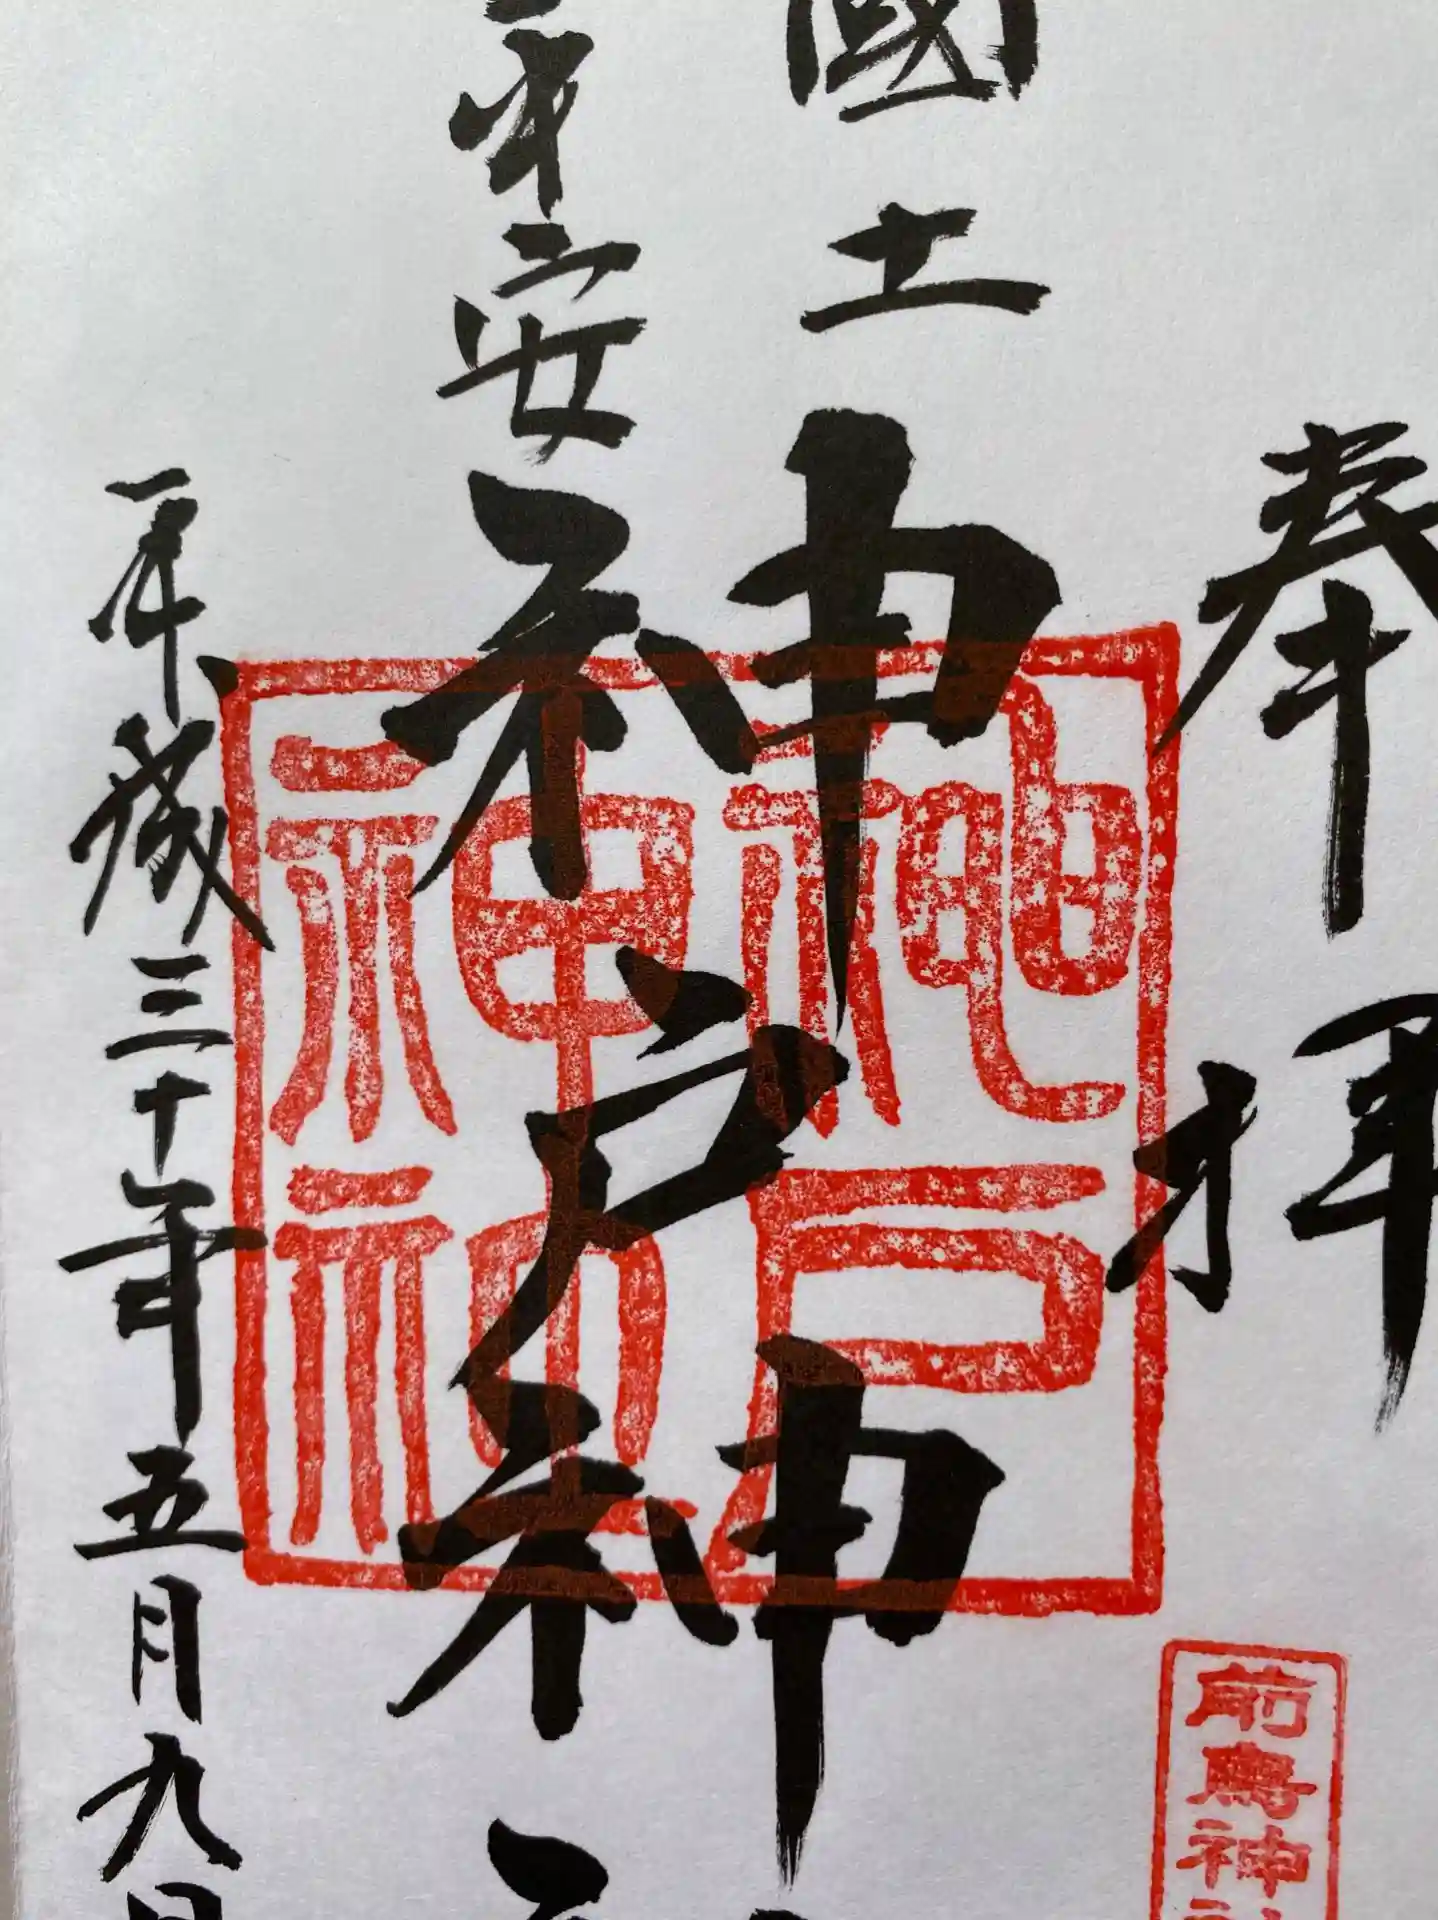 奉拝
國土
平安
神戸神社
平成三十年五月九日
神戸
神社
前鳥神社